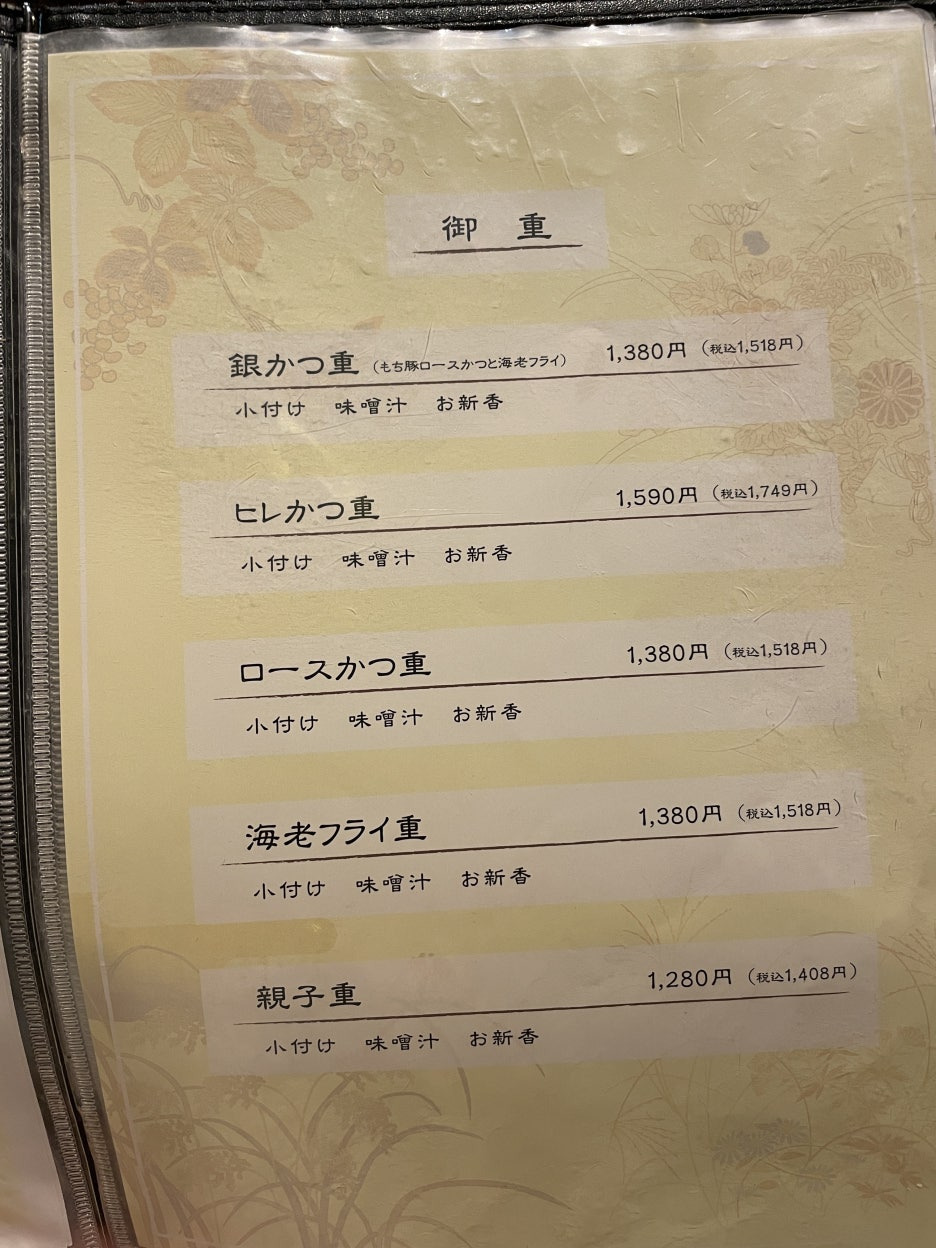 御 重
銀かつ重 (もち豚ロースかつと海老フライ) 1,380円 (税込1,518円)
小付け 味噌汁 お新香
ヒレかつ重 1,590円 (税込1,749円)
小付け 味噌汁 お新香
ロースかつ重 1,380円 (税込1,518円)
小付け 味噌汁 お新香
海老フライ重 1,380円 (税込1,518円)
小付け 味噌汁 お新香
親子重 1,280円 (税込1,408円)
小付け 味噌汁 お新香